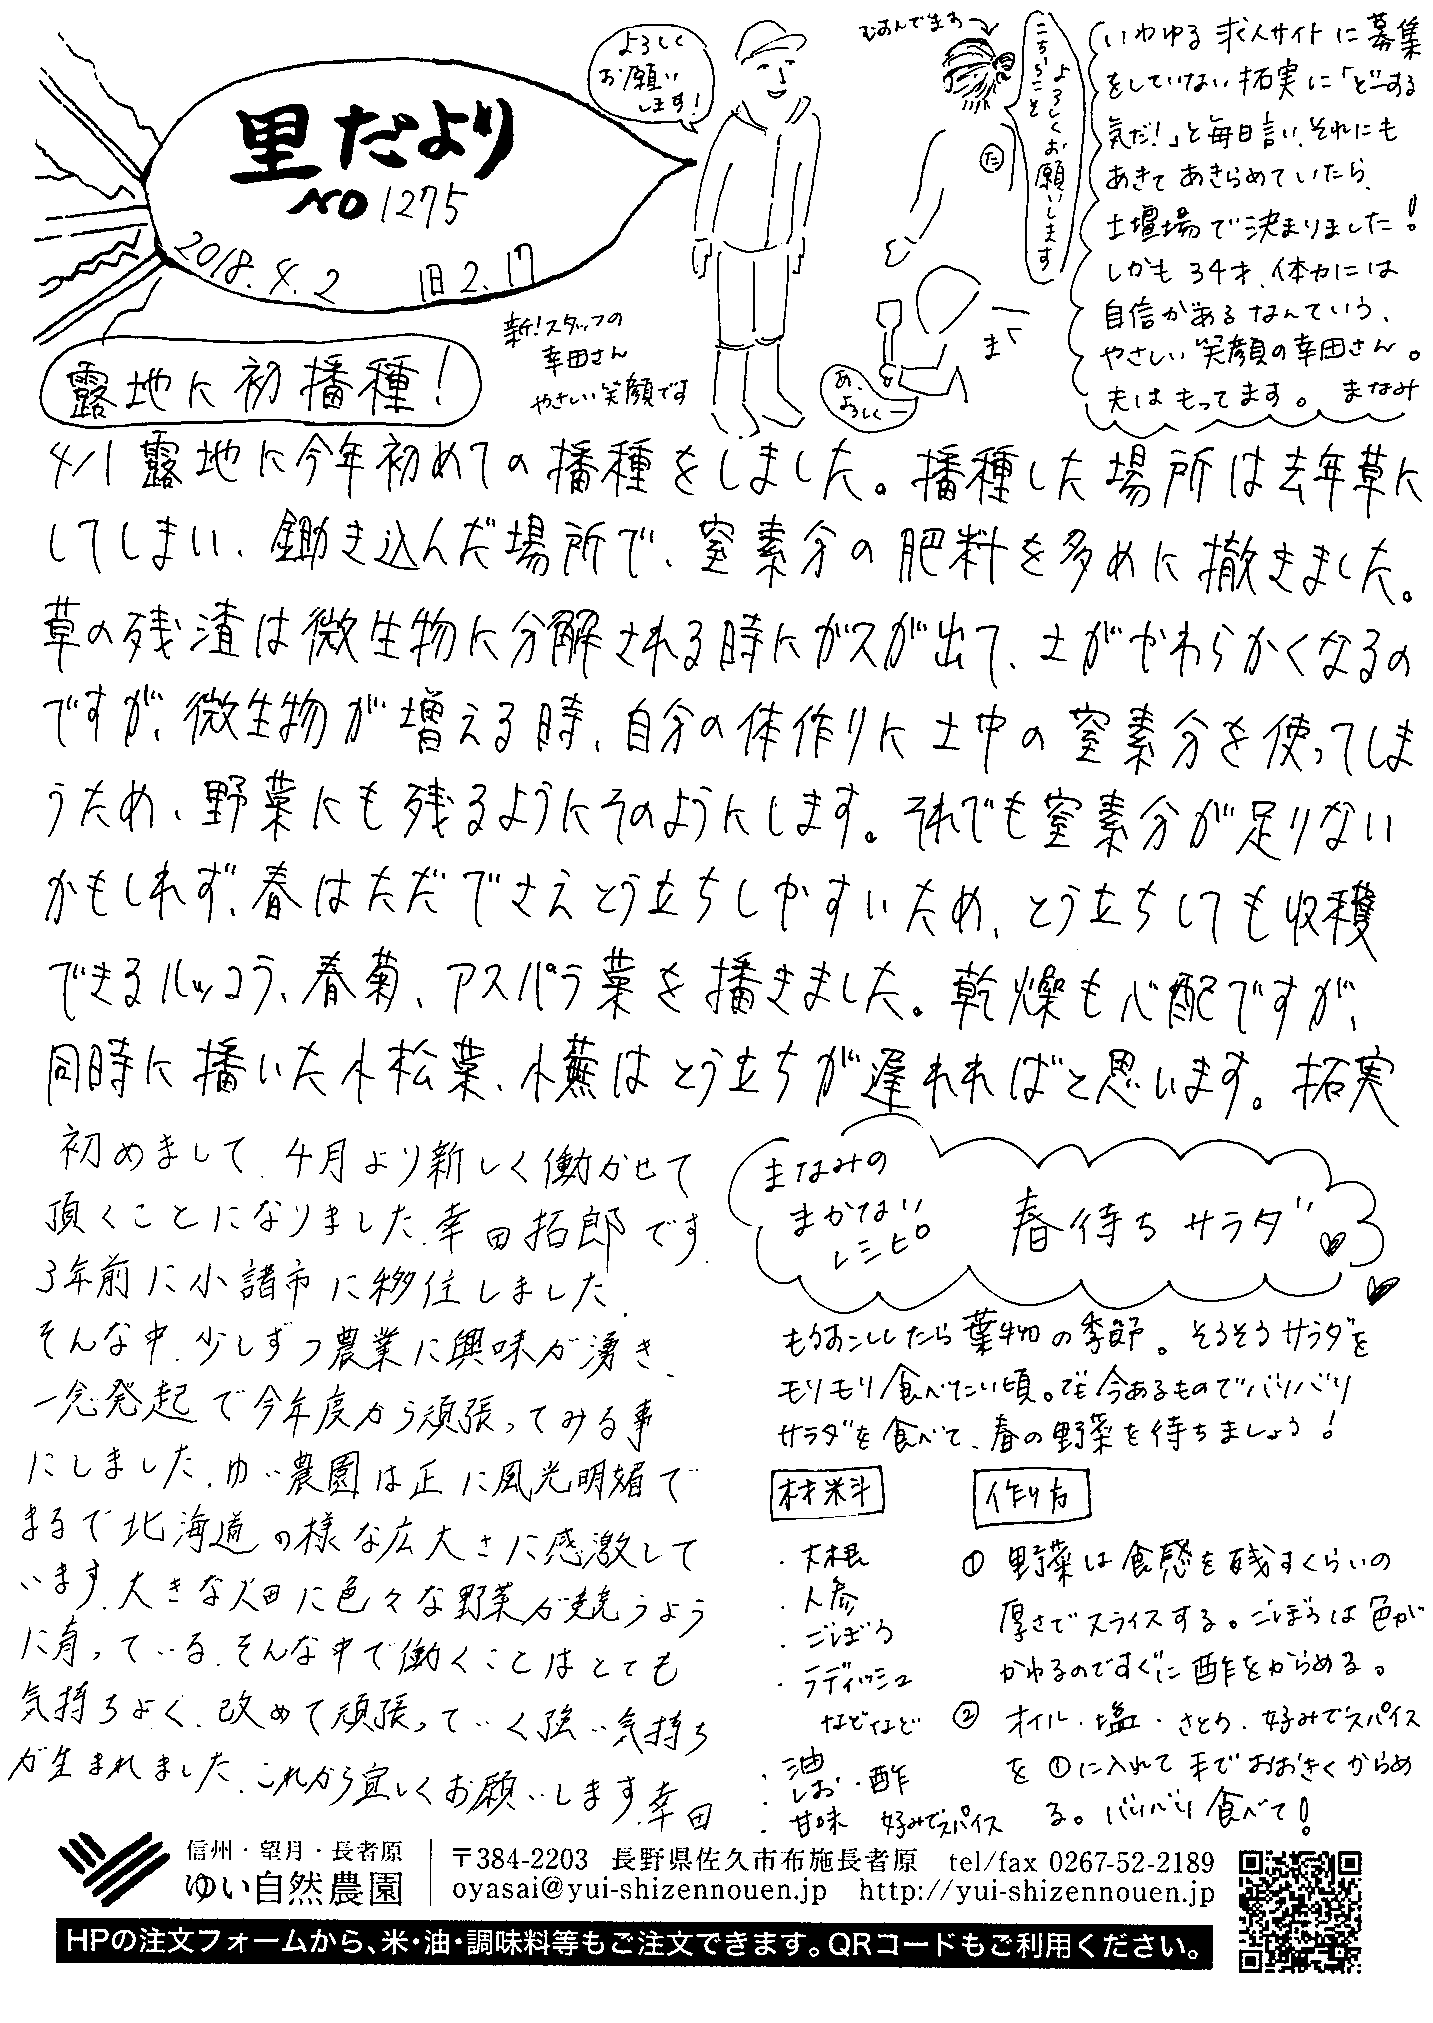 里だより
NO 1275
2018.4.2 旧2.17
よろしく
お願い
します！
むすんでます
こちらこそ
よろしくお願いします
た
ま
あ、
よろしくー
新！スタッフの
幸田さん
やさしい笑顔です
いわゆる求人サイトに募集
をしていない拓実に「どーする
気だ！」と毎日言い、それにも
あきてあきらめていたら、
土壇場で決まりました！
しかも34才、体力には
自信があるなんていう、
やさしい笑顔の幸田さん。
夫はもってます。 まなみ
露地に初播種！
4/1 露地に今年初めての播種をしました。播種した場所は去年草に
してしまい、鋤き込んだ場所で、窒素分の肥料を多めに撒きました。
草の残渣は微生物に分解される時にガスが出て、土がやわらかくなるの
ですが、微生物が増える時、自分の体作りに土中の窒素分を使ってしま
うため、野菜にも残るようにそのようにします。それでも窒素分が足りない
かもしれず、春はただでさえとう立ちしやすいため、とう立ちしても収穫
できるルッコラ、春菊、アスパラ菜を播きました。乾燥も心配ですが、
同時に播いた小松菜、小蕪はとう立ちが遅れればと思います。拓実
初めまして、4月より新しく働かせて
頂くことになりました、幸田拓郎です。
3年前に小諸市に移住しました。
そんな中、少しずつ農業に興味が湧き、
一念発起で今年度から頑張ってみる事
にしました。ゆい農園は正に風光明媚で
まるで北海道の様な広大さに感激して
います。大きな畑に色々な野菜が競うよう
に育っている、そんな中で働くことはとても
気持ちよく、改めて頑張っていく強い気持ち
が生まれました。これから宜しくお願いします。幸田
まなみの
まかない
レシピ
春待ちサラダ
もう少ししたら葉物の季節。そろそろサラダを
モリモリ食べたい頃。でも今あるものでバリバリ
サラダを食べて、春の野菜を待ちましょう！
材料
・大根
・人参
・ごぼう
・ラディッシュ
などなど
・油
・しお・酢
・甘味 好みでスパイス
作り方
① 野菜は食感を残すくらいの
厚さでスライスする。ごぼうは色が
かわるのですぐに酢をからめる。
② オイル・塩・さとう・好みでスパイス
を①に入れて手でおおきくからめ
る。バリバリ食べて！
信州・望月・長者原
ゆい自然農園
〒384-2203 長野県佐久市布施長者原 tel/fax 0267-52-2189
oyasai@yui-shizennouen.jp http://yui-shizennouen.jp
HPの注文フォームから、米・油・調味料等もご注文できます。QRコードもご利用ください。